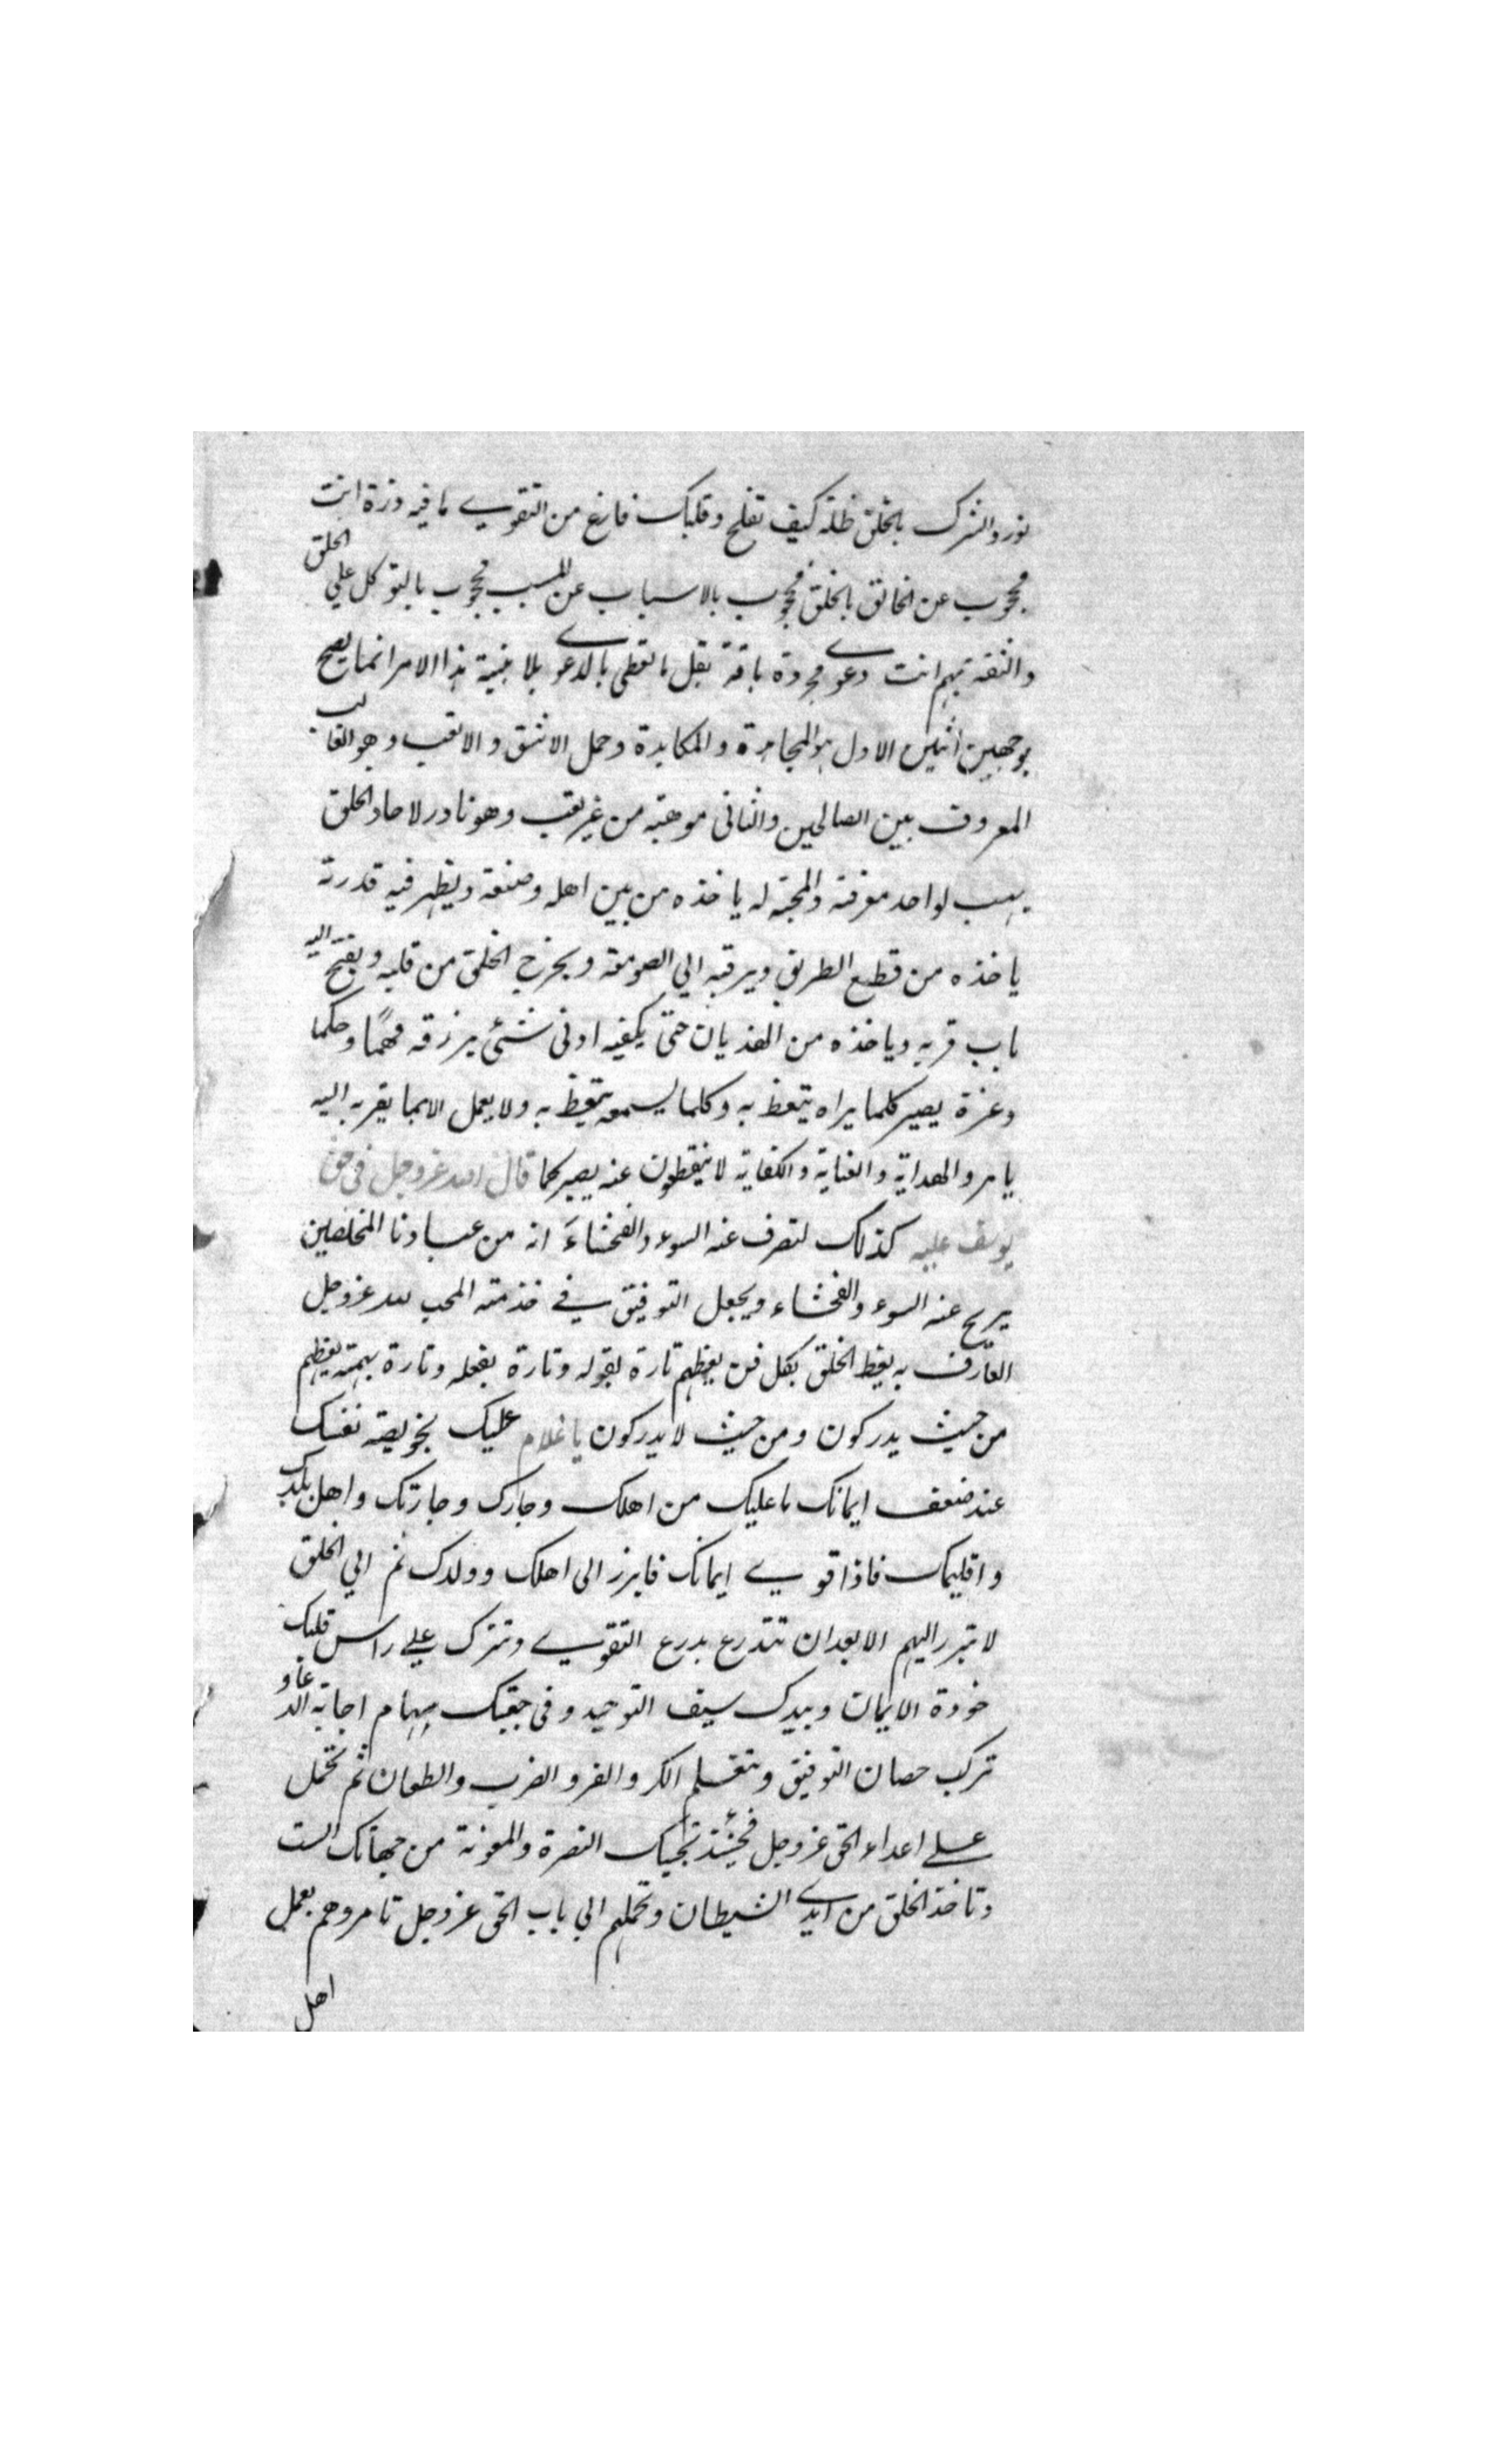 نور والشرك بالخلق ظلمة كيف تفلح وقلبك فارغ من التقوي ما فيه ذرة انت
محجوب عن الخالق بالخلق محجوب بالاسباب عن المسبب محجوب بالتوكل علي الخلق
والثقة بهم انت دعوي مجردة باقة بقل ما تعطى بالدعوي بلا بينة هذا الامر انما يصح
بوجهين اثنين الاول هو المجاهدة والمكابدة وحمل الاشق والاتعب وهو الغالب
المعروف بين الصالحين والثانى موهبة من غير تعب وهو نادر لاحاد الخلق
يهب لواحد معرفته والمحبة له ياخذه من بين اهله وصنعة ويظهر فيه قدرته
ياخذه من قطع الطريق ويرقيه الي الصومعة ويخرج الخلق من قلبه ويفتح اليه
باب قربه وياخذه من الهذيان حتى يكفيه ادنى شئى يرزقه فهمًا وحكما
وعزة يصير كلما يراه يتعظ به وكلما يسمعه يتعظ به ولا يعمل الا بما يقربه اليه
يامر والهداية والعناية والكفاية لا ينقطعون عنه يصير كما قال الله عز وجل فى حق
يوسف عليه كذلك لنصرف عنه السوء والفحشاءَ انه من عبادنا المخلصين
يزيح عنه السوء والفحشاء ويجعل التوفيق في خدمته المحب لله عز وجل
العارف به يعظ الخلق بكل فن يعظهم تارة بقوله وتارة بفعله وتارة بهمته يعظهم
من حيث يدركون ومن حيث لا يدركون يا غلام عليك بخويصة نفسك
عند ضعف ايمانك ما عليك من اهلك وجارك وجارتك واهل بلدك
واقليمك فاذا قوي ايمانك فابرز الى اهلك وولدك ثم الي الخلق
لا تبرز اليهم الا بعد ان تتدرع بدرع التقوي وتترك علي راس قلبك
خوذة الايمان وبيدك سيف التوحيد وفى جعبتك سهام اجابة الدعاو
تركب حصان التوفيق وتتعلم الكر والفر والضرب والطعان ثم تحمل
علي اعداء الحق عز وجل فحينئذ تجيك النصرة والمعونة من جهاتك الست
وتاخذ الخلق من ايدي الشيطان وتحملهم الي باب الحق عز وجل تامروهم بعمل
اهل